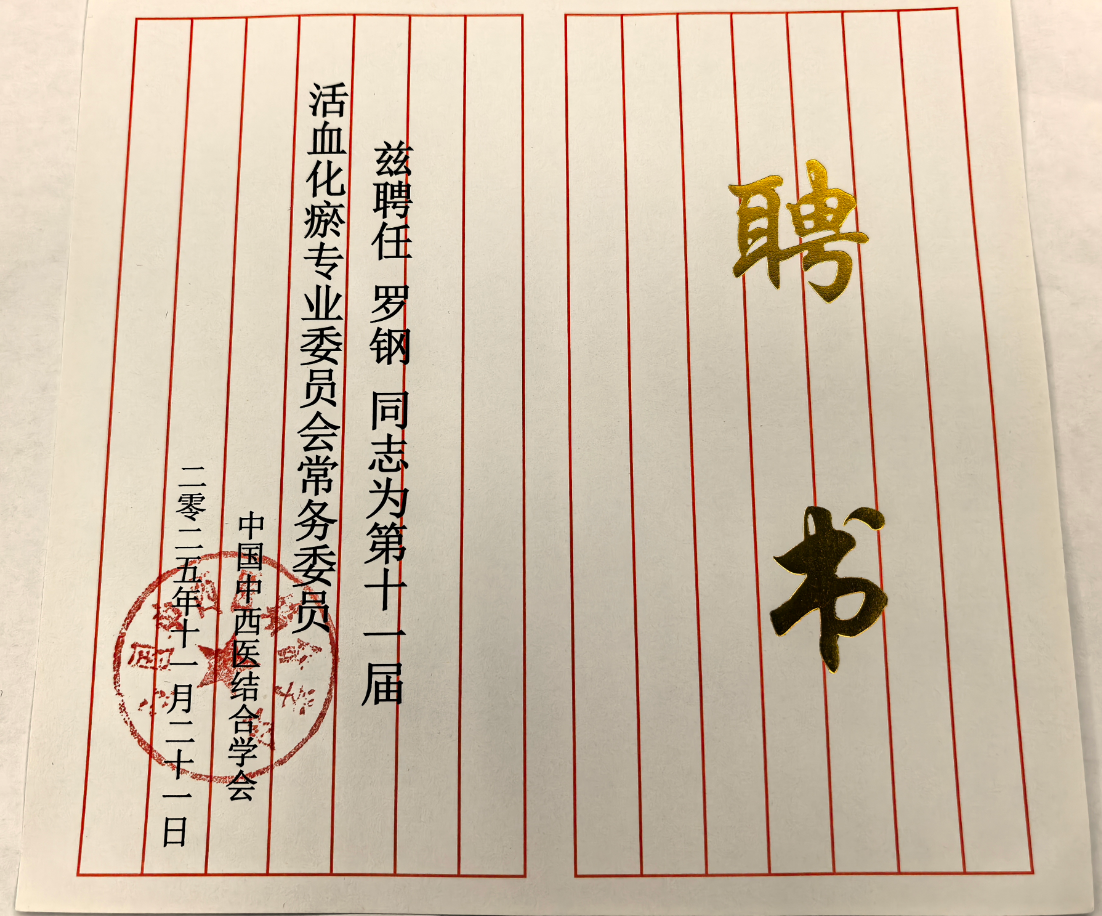 聘书
兹聘任 罗钢 同志为第十一届
活血化瘀专业委员会常务委员
中国中西医结合学会
二零二五年十一月二十一日